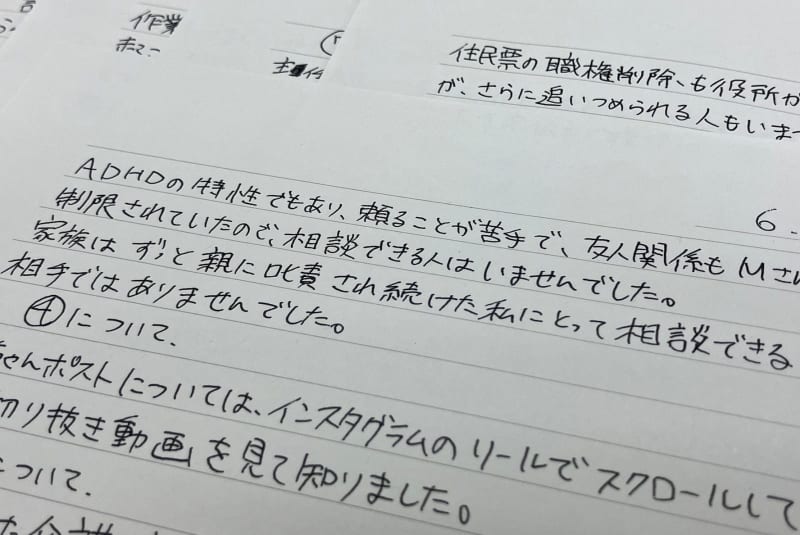 作業
住民票の職権削除、も役所が
が、さらに追いつめられる人もいま
6.
ADHDの特性でもあり、頼ることが苦手で、友人関係もMさん
制限されていたので、相談できる人はいませんでした。
家族はずっと親に叱責され続けた私にとって相談できる
相手ではありませんでした。
④について.
ちゃんポストについては、インスタグラムのリールでスクロールして
切り抜き動画を見て知りました。
について.